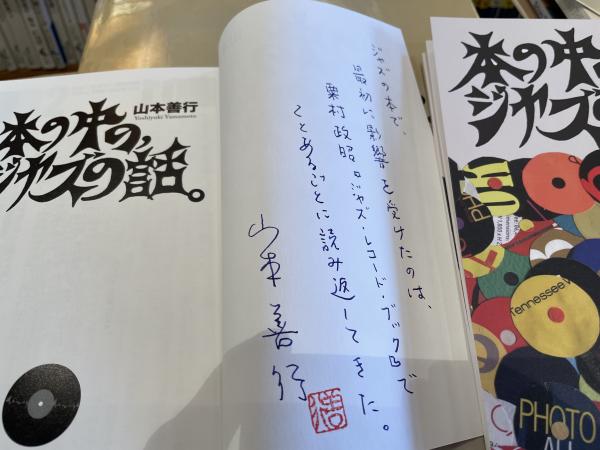 本の中の、
ジャズの話。
山本善行
Yoshiyuki Yamamoto
ジャズの本で、
最初に影響を受けたのは、
粟村政昭『ジャズ・レコード・ブック』で
ことあるごとに読み返してきた。
山本善行
本の中
ジャズの
PHO
Tennessee W
PHOTO
ALL